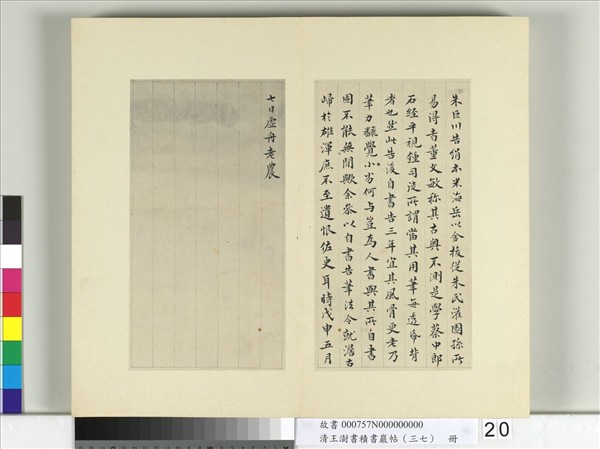 朱巨川告絹本米海岳以金梭從朱氏灌園孫所
易得者董文敏称其古奧不測是學蔡中郎
石經平視鍾司徒所謂當其用筆每透帋背
者也茲此告後自書告三年宜其風骨更老乃
筆力頗覺小劣何与豈為人書與其所自書
固不能無間歟余參以自書告筆法令就澹古
歸於雄渾庶不至遺恨佐史耳時戊申五月
七日虛舟老農
故書 000757N000000000
清王澍書積書巖帖（三七） 冊
20